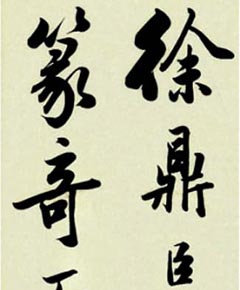 徐鼎臣
篆奇